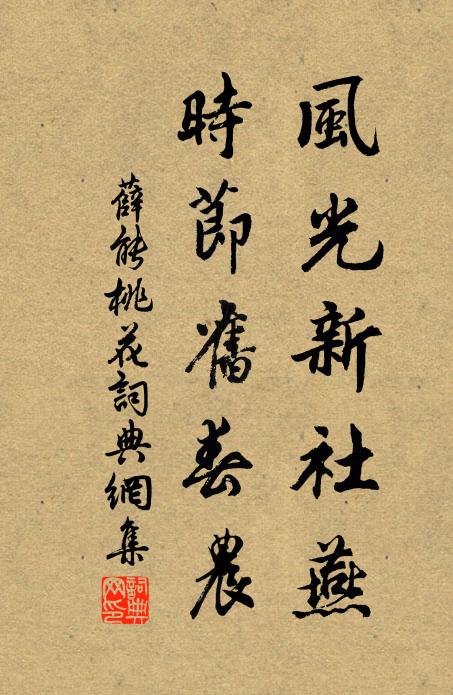 風光新社燕
時節舊春農
薛能桃花詞典網集
詞典网印